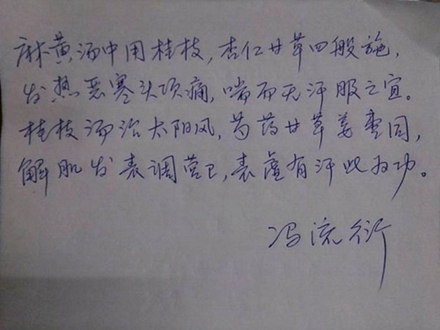 麻黄汤中用桂枝，杏仁甘草四般施，
发热恶寒头项痛，喘而无汗服之宜。
桂枝汤治太阳风，芍药甘草姜枣同，
解肌发表调营卫，表虚有汗此为功。
冯流衍